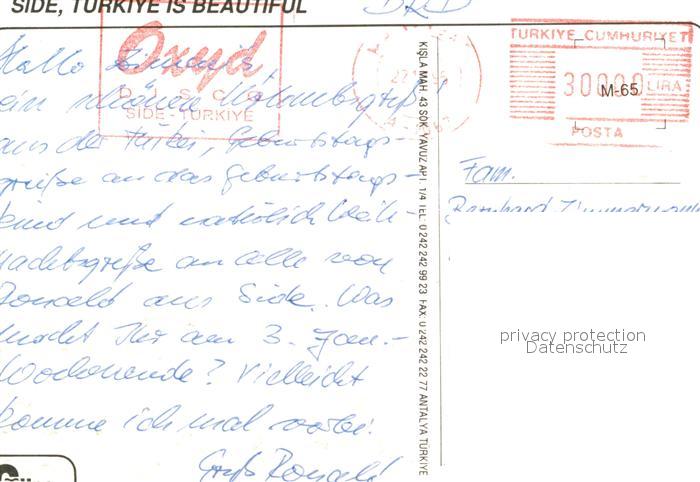 SIDE, TÜRKIYE IS BEAUTIFUL
BRD
Oxyd
DISCO
SIDE - TÜRKIYE
TÜRKIYE CUMHURIYET
LIRA
M-65
POSTA
KIŞLA MAH. 43 SOK. YAVUZ APT. 1/4 TEL: 0 242 242 99 23 FAX: 0 242 242 22 77 ANTALYA TÜRKIYE
Hallo
ein schöner
aus der Türkei, Geburtstags-
grüße an das Geburtstags-
kind und natürlich Weih-
nachtsgrüße an alle von
Ronald aus Side. Was
macht Ihr am 3. Jan.-
Wochenende? Vielleicht
komme ich mal vorbei.
Gruß Ronald
Fam.
privacy protection
Datenschutz